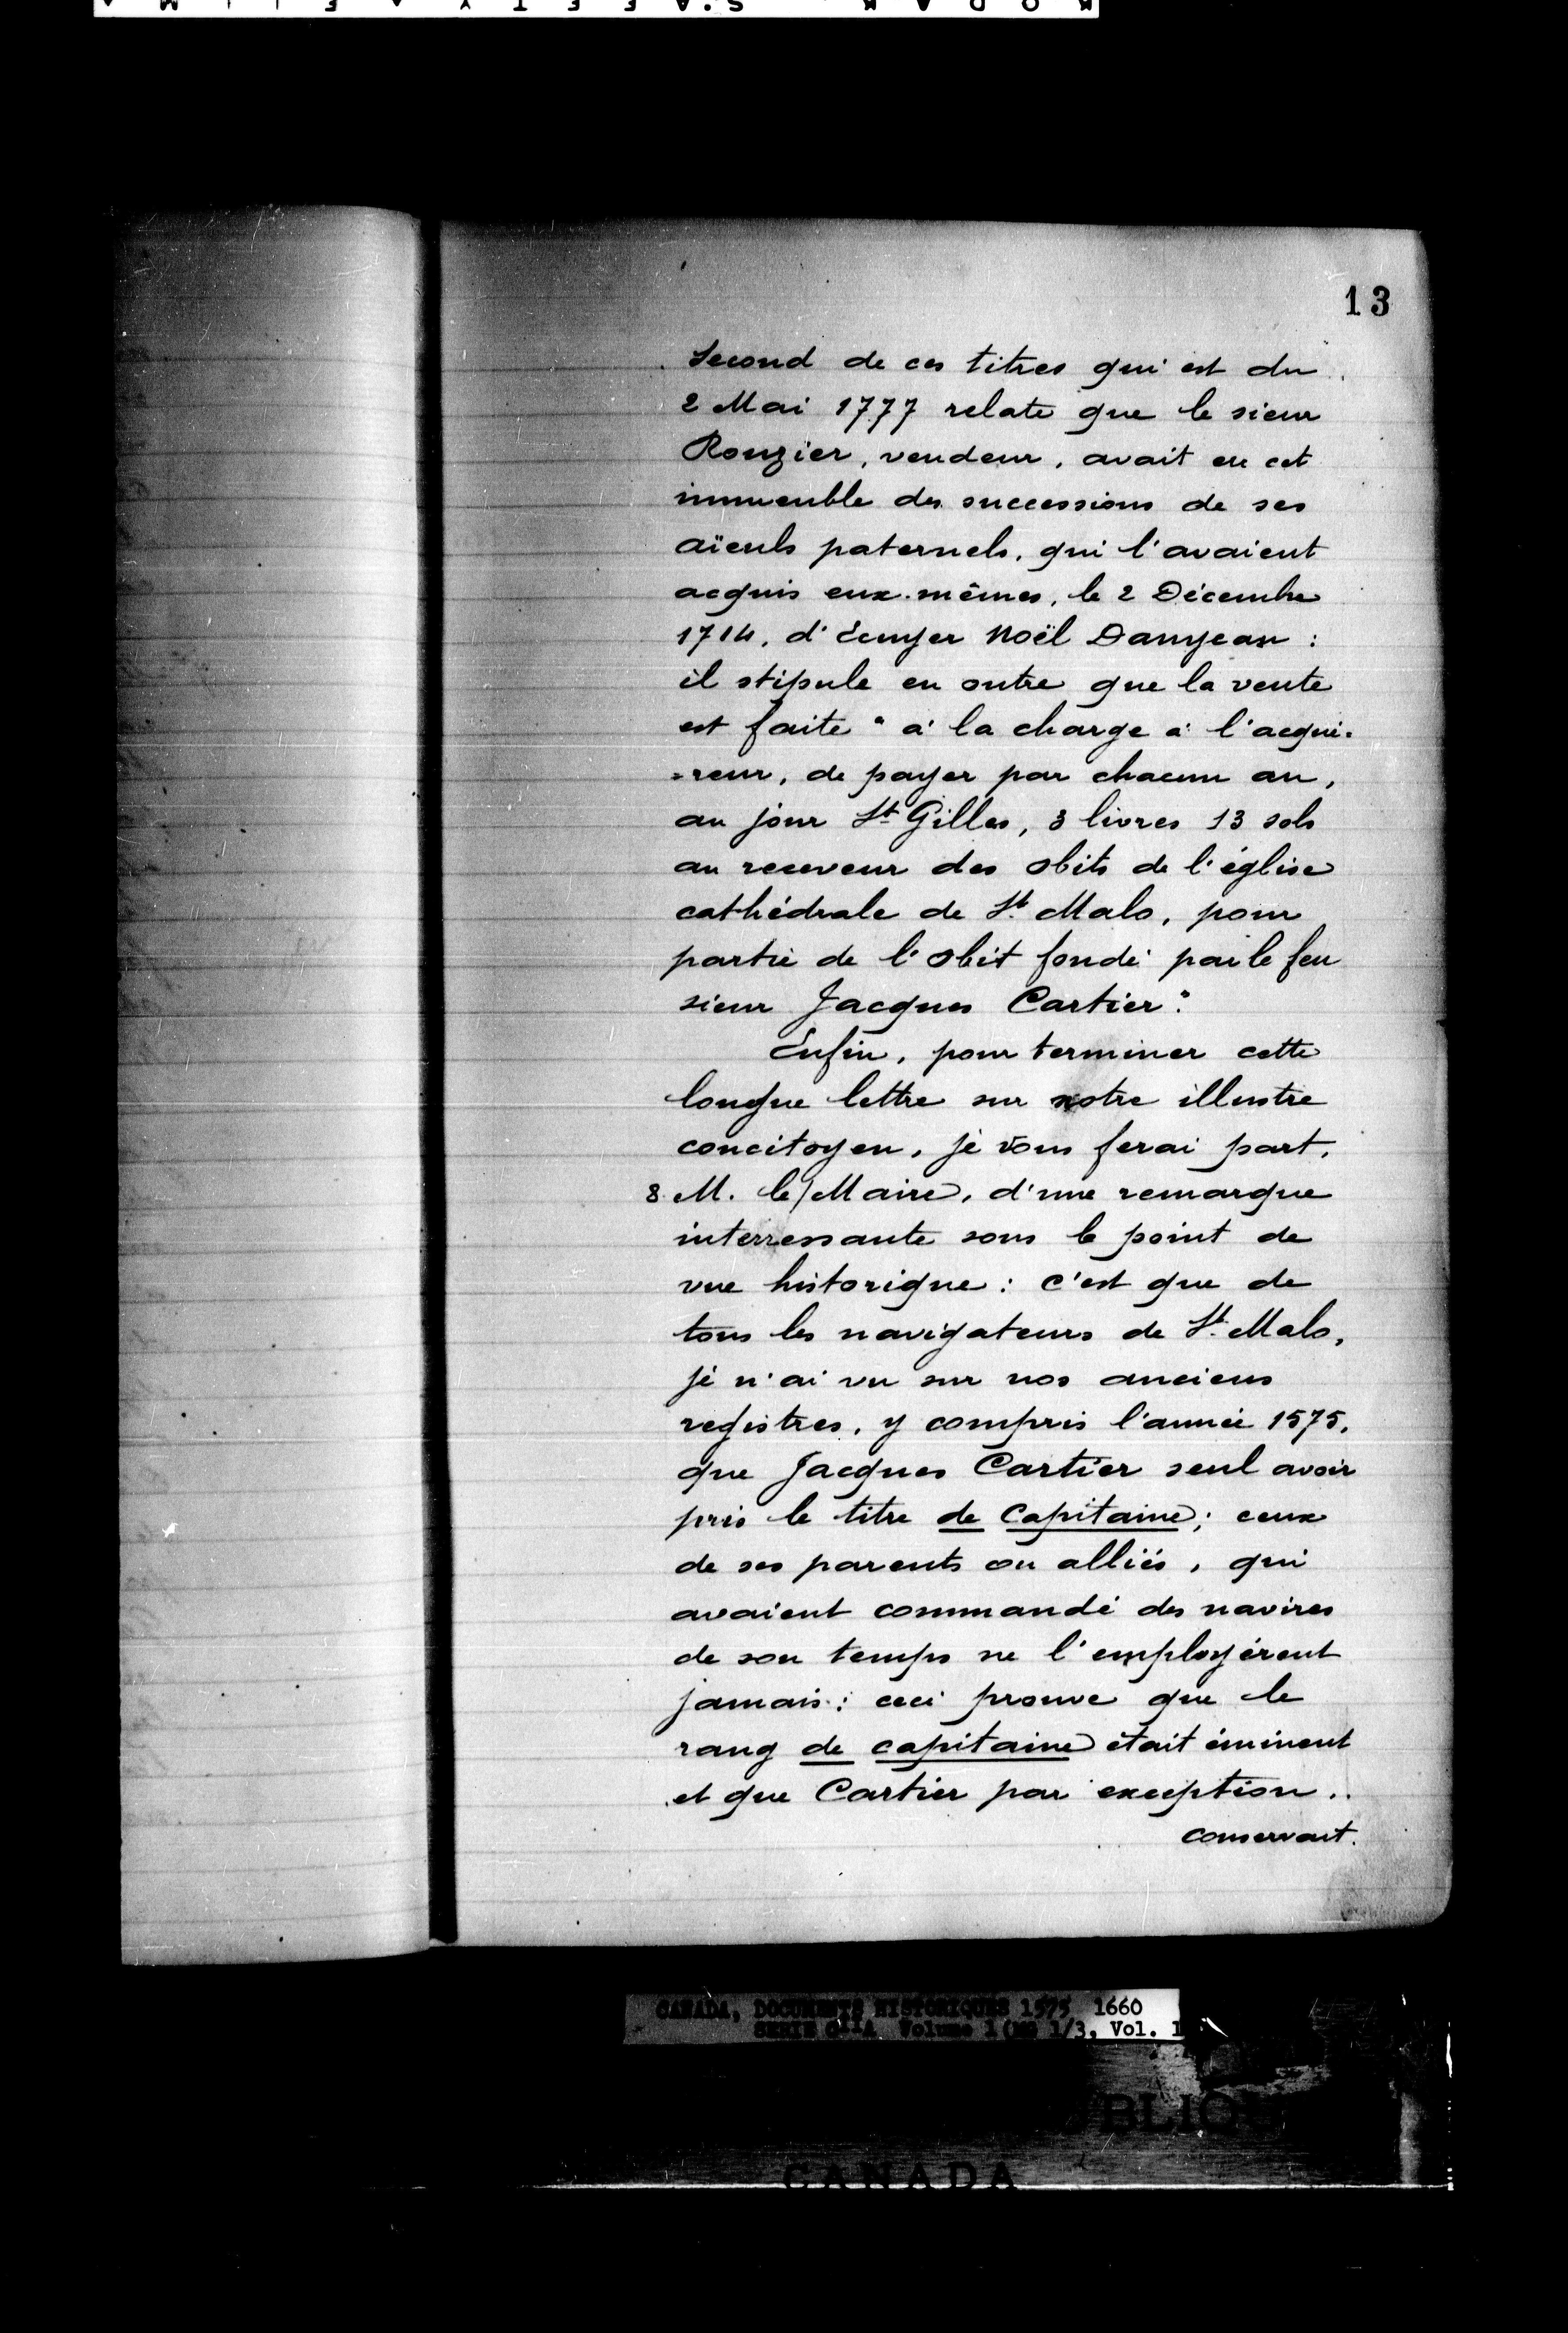 13
Second de ces titres qui est du
2 Mai 1777 relate que le sieur
Rouzier, vendeur, avait eu cet
immeuble des successions de ses
aïeuls paternels, qui l'avaient
acquis eux-mêmes, le 2 Décembre
1714, d'Ecuyer Noël Danycan :
il stipule en outre que la vente
est faite " à la charge à l'acqué-
=reur, de payer par chacun an,
au jour St Gilles, 3 livres 13 sols
au receveur des obits de l'église
cathédrale de St. Malo, pour
partie de l'obit fondé par le feu
sieur Jacques Cartier".
Enfin, pour terminer cette
longue lettre sur notre illustre
concitoyen, je vous ferai part,
8 M. le/Maire, d'une remarque
interressante sous le point de
vue historique : c'est que de
tous les navigateurs de St. Malo,
je n'ai vu sur nos anciens
registres, y compris l'année 1575,
que Jacques Cartier seul avoir
pris le titre de Capitaine; ceux
de ses parents ou alliés, qui
avaient commandé des navires
de son temps ne l'employèrent
jamais : ceci prouve que le
rang de capitaine était éminent
et que Cartier par exception..
conservait.
CANADA, DOCUMENTS HISTORIQUES 1575 1660
SERIE C11A Volume 1 (NO 1/3, Vol. 1
CANADA